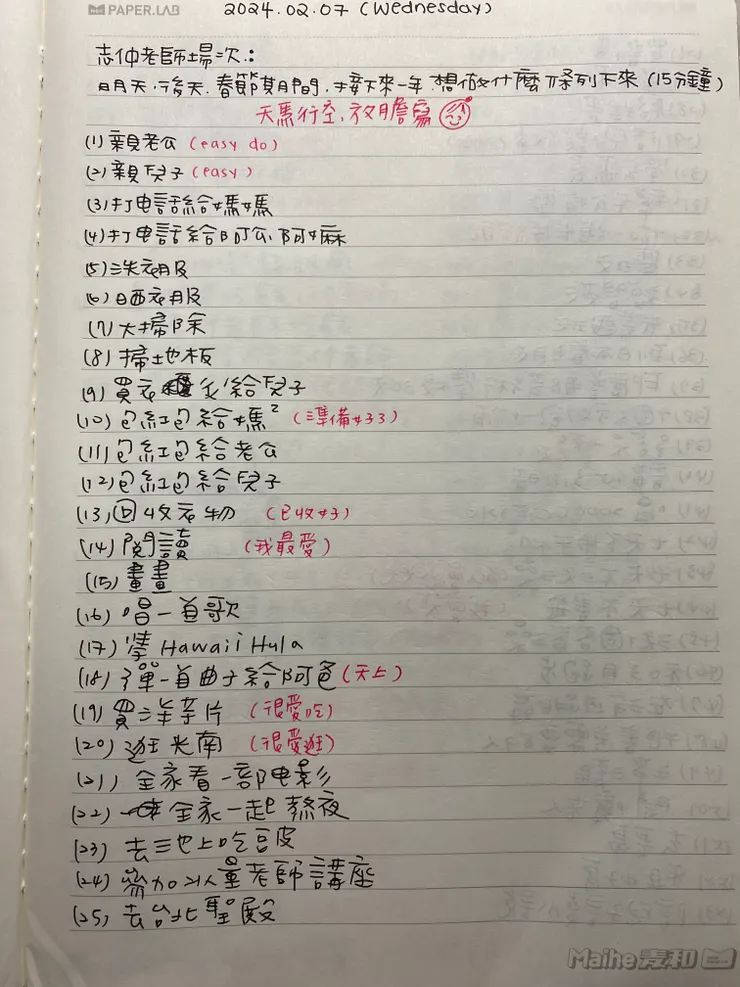 PAPER.LAB
2024.02.07 (Wednesday)
志仲老師場次:
明天、後天、春節期間、接下來一年、想做什麼 條列下來 (15分鐘)
天馬行空、放膽寫
(1) 親老公 (easy do)
(2) 親兒子 (easy)
(3) 打电話給媽媽
(4) 打电話給阿公、阿嬤
(5) 洗衣服
(6) 晒衣服
(7) 大掃除
(8) 掃地板
(9) 買衣 給兒子
(10) 包紅包給媽² (準備好了)
(11) 包紅包給老公
(12) 包紅包給兒子
(13) 回收衣物 (已收好)
(14) 閱讀 (我最愛)
(15) 畫畫
(16) 唱一首歌
(17) 學 Hawaii Hula
(18) 彈一首曲子給阿爸 (天上)
(19) 買洋芋片 (很愛吃)
(20) 逛光南 (很愛逛)
(21) 全家看一部电影
(22) 全家一起熬夜
(23) 去三地上吃豆皮
(24) 參加 量老師講座
(25) 去台北聖殿
Maihe麦和
PAPER.LAB